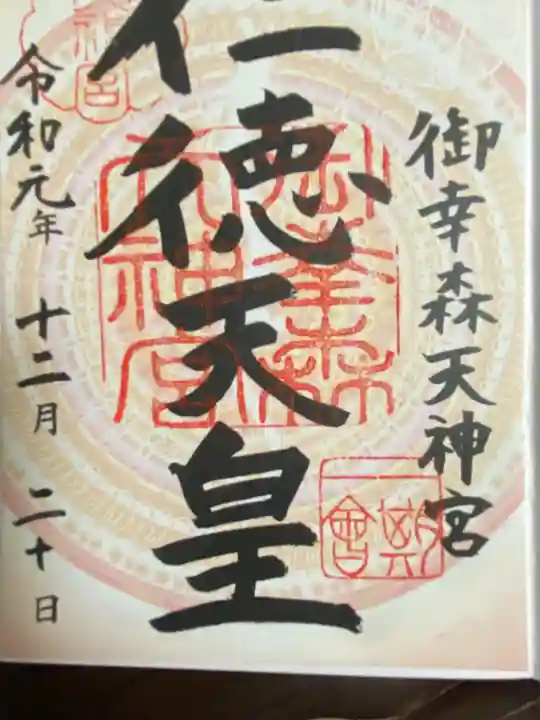 御幸森天神宮
仁徳天皇
令和元年 十二月 二十日
御幸森
天神宮